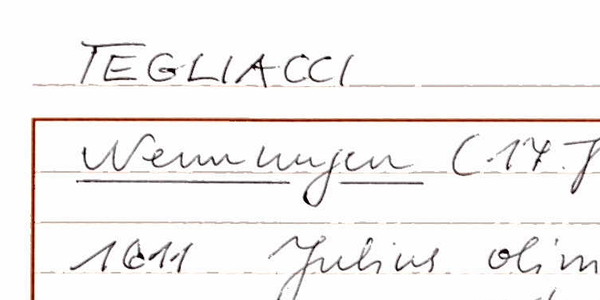 TEGLIACCI
Nennungen (17. J
1611 Julius olim